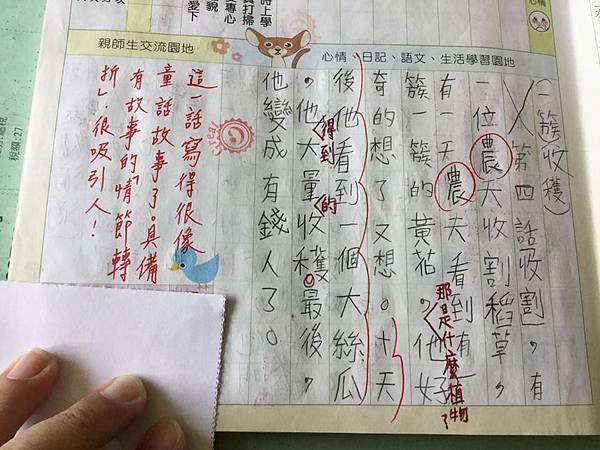 心情
時上學
真打掃
更專心
貌
愛下
心情、日記、語文、生活學習園地
親師生交流園地
(一簇)(收穫)
第四話收割，有
一位農夫收割稻草，
有一天農夫看到有
簇一簇的黃花，他好
那是什麼植物？
奇的想了又想。十天
後他看到一個大絲瓜
得到
的
，他大量收穫。最後，
他變成有錢人了。
Great
這一話寫得很像
童話故事了。具備
有故事的「情節轉
折」，很吸引人！
稅額:27